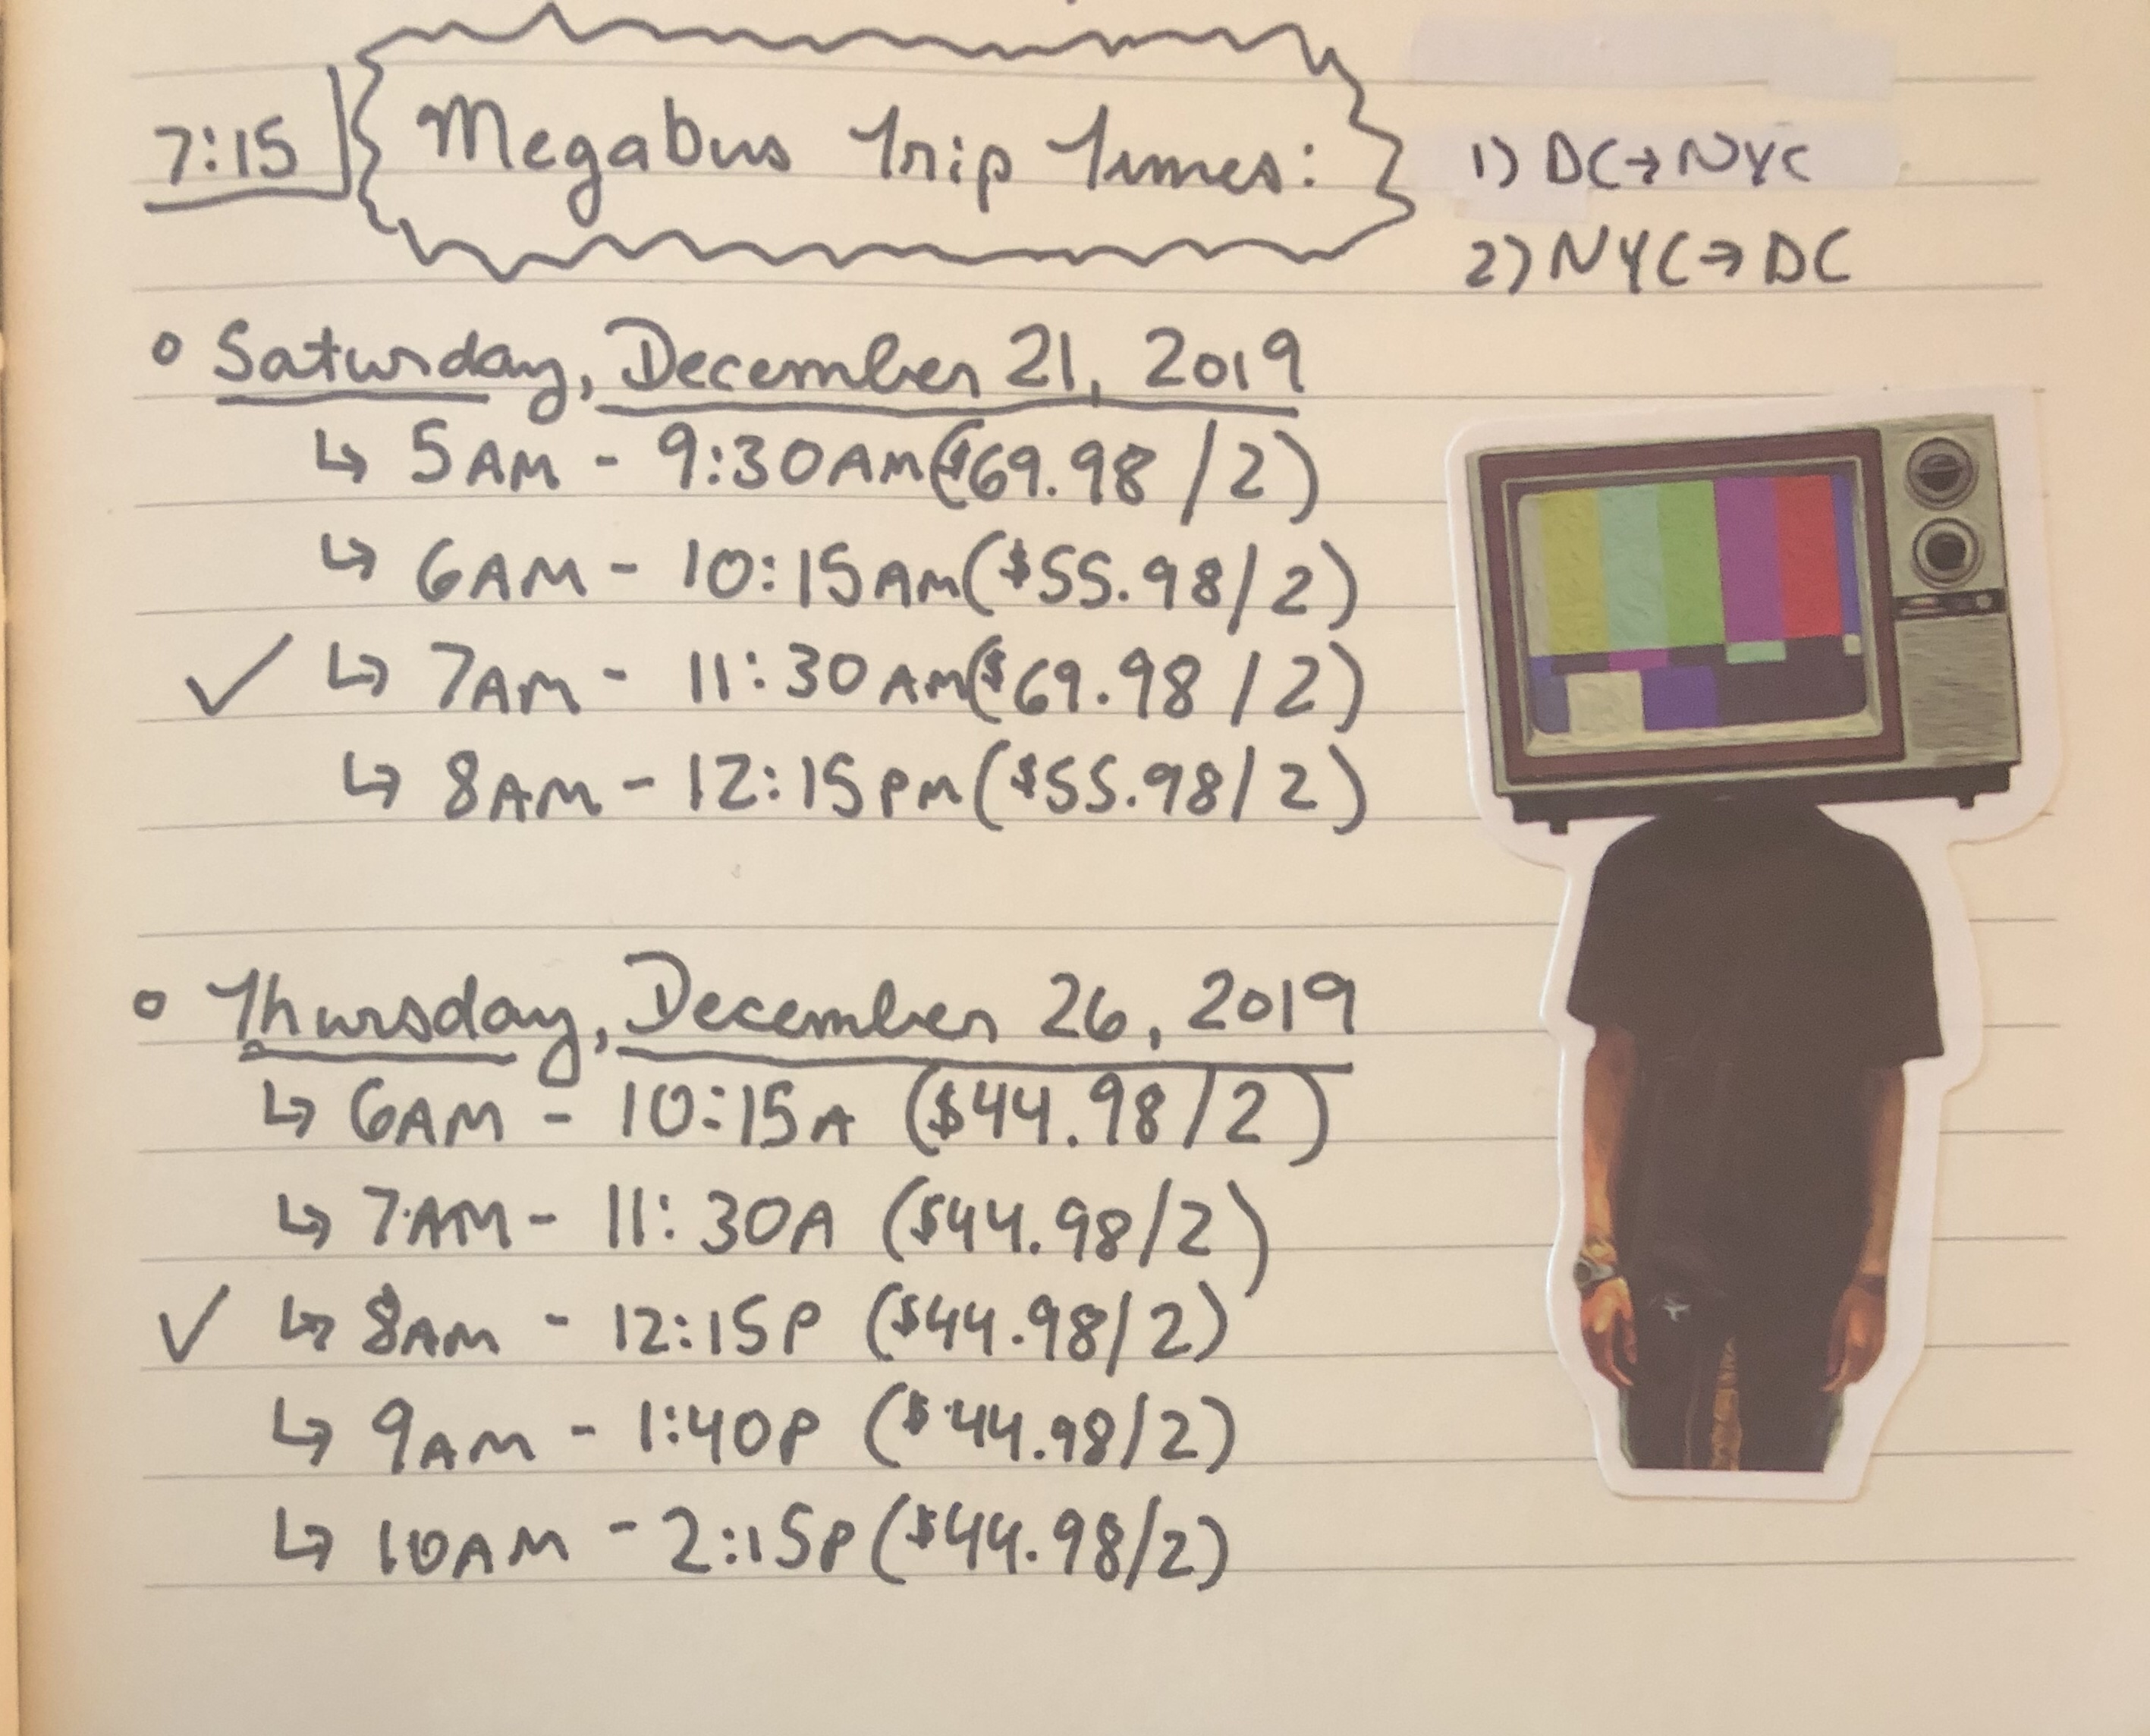 7:15 Megabus Trip Times:
1) DC→NYC
2) NYC→DC
Saturday, December 21, 2019
↳ 5AM - 9:30AM($69.98/2)
↳ 6AM - 10:15AM($55.98/2)
✓ ↳ 7AM - 11:30AM($69.98/2)
↳ 8AM - 12:15PM($55.98/2)
Thursday, December 26, 2019
↳ 6AM - 10:15A ($44.98/2)
↳ 7AM - 11:30A ($44.98/2)
✓ ↳ 8AM - 12:15P ($44.98/2)
↳ 9AM - 1:40P ($44.98/2)
↳ 10AM - 2:15P($44.98/2)